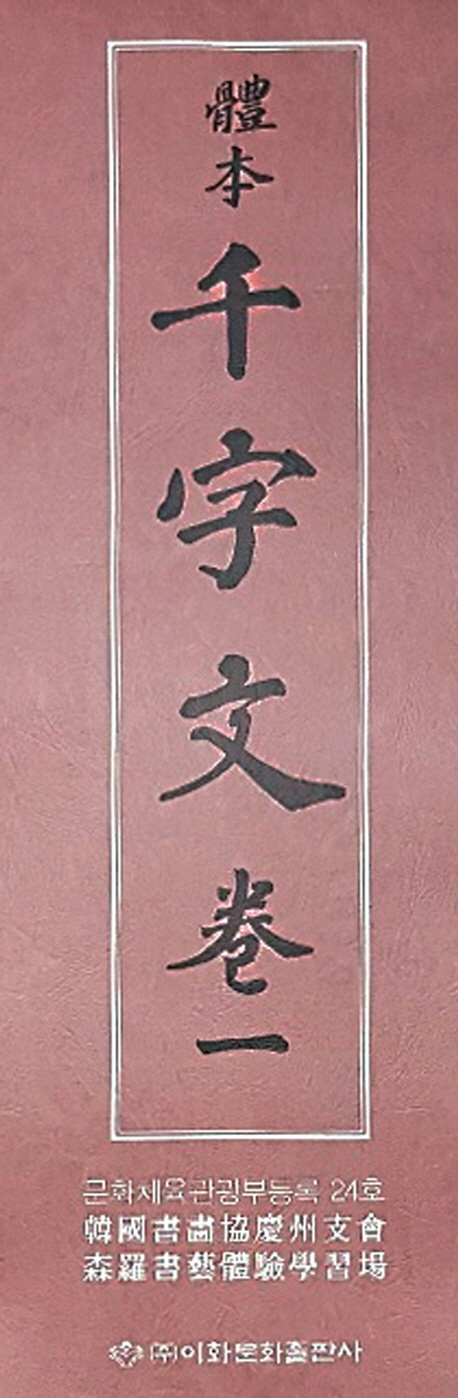 體本
千字文卷一
문화체육관광부등록 24호
韓國書畵協慶州支會
森羅書藝體驗學習場
㈜이화문화출판사